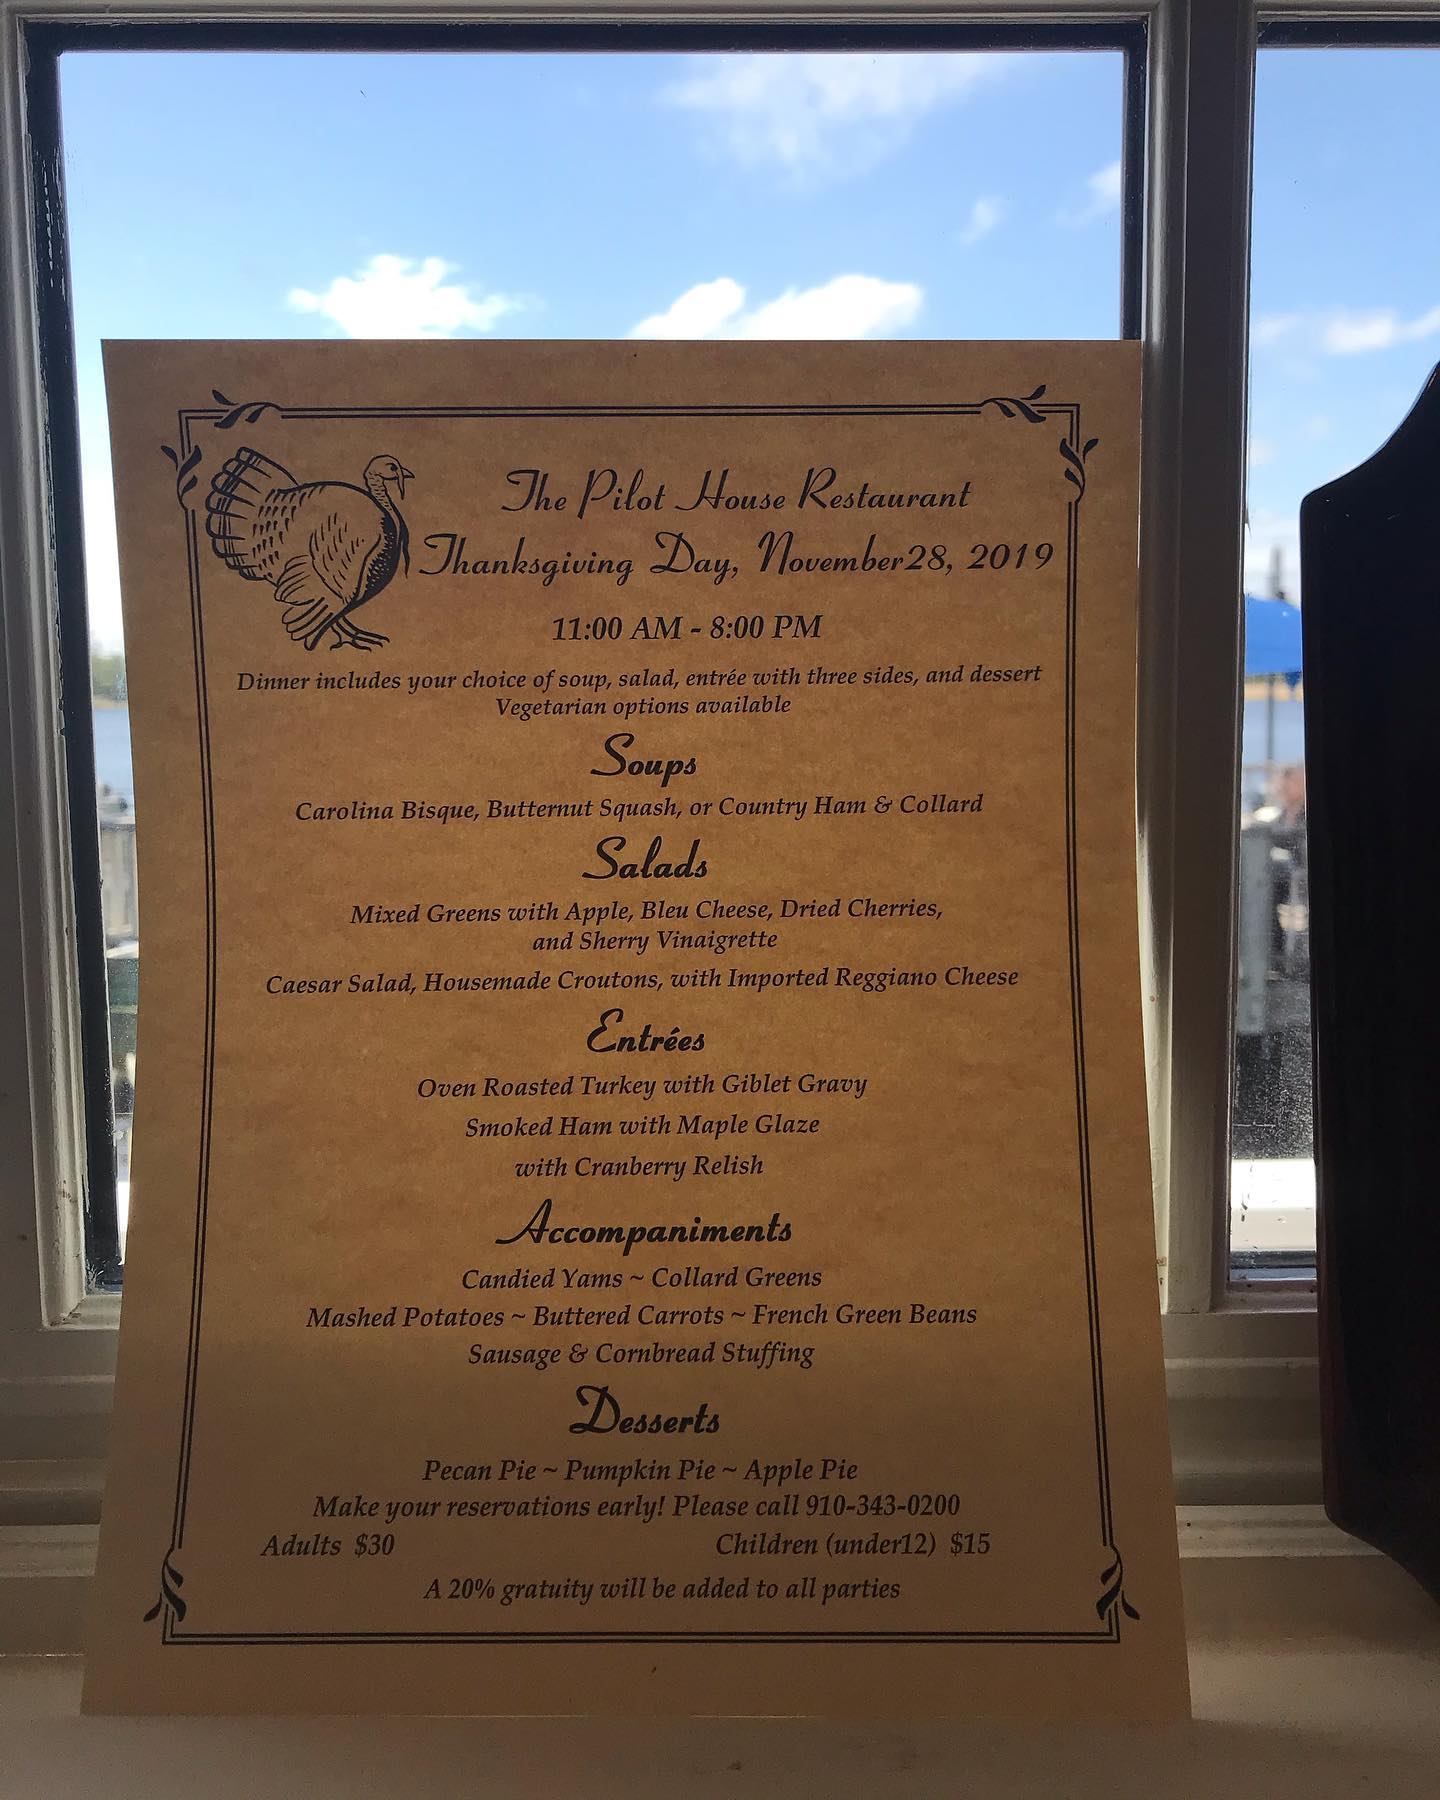 The Pilot House Restaurant
Thanksgiving Day, November28, 2019
11:00 AM - 8:00 PM
Dinner includes your choice of soup, salad, entrée with three sides, and dessert
Vegetarian options available
Soups
Carolina Bisque, Butternut Squash, or Country Ham & Collard
Salads
Mixed Greens with Apple, Bleu Cheese, Dried Cherries,
and Sherry Vinaigrette
Caesar Salad, Housemade Croutons, with Imported Reggiano Cheese
Entrées
Oven Roasted Turkey with Giblet Gravy
Smoked Ham with Maple Glaze
with Cranberry Relish
Accompaniments
Candied Yams ~ Collard Greens
Mashed Potatoes ~ Buttered Carrots ~ French Green Beans
Sausage & Cornbread Stuffing
Desserts
Pecan Pie ~ Pumpkin Pie ~ Apple Pie
Make your reservations early! Please call 910-343-0200
Adults $30 Children (under12) $15
A 20% gratuity will be added to all parties